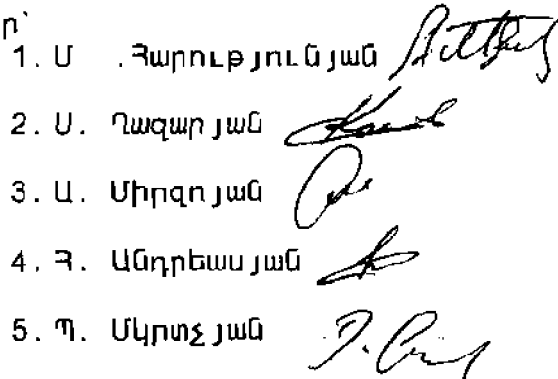 ր՝
1. Մ .Հարությունյան
2. Ս. Ղազարյան
3. Ա. Միրզոյան
4. Հ. Անդրեասյան
5. Պ. Մկրտչյան